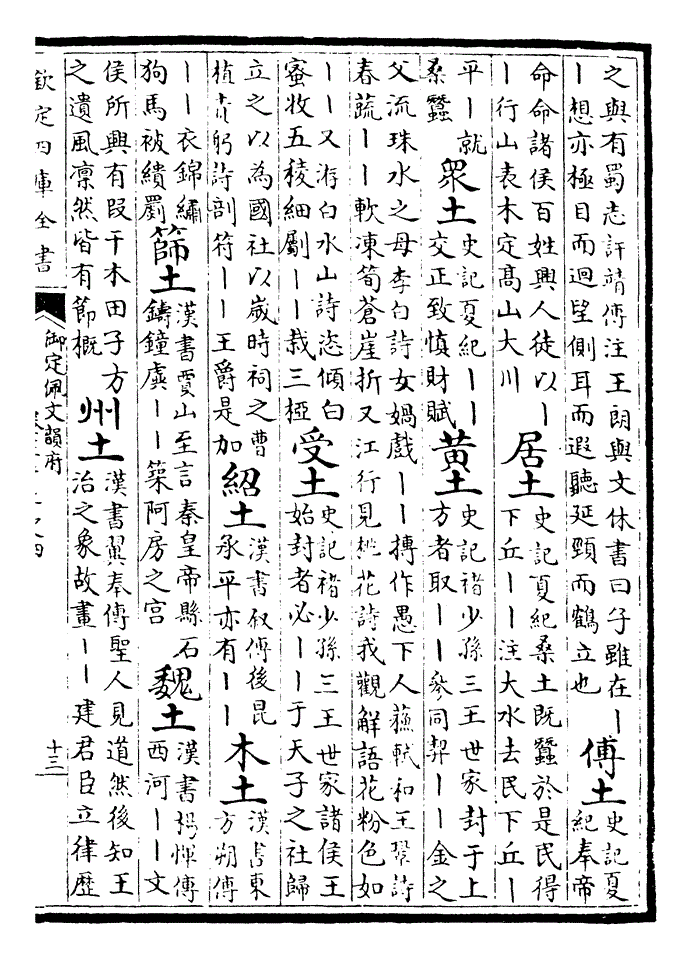 之與有蜀志許靖傳注王朗與文休書曰子雖在丨
丨想亦極目而迴望側耳而遐聽延頸而鶴立也
傅土
史記夏
紀奉帝
命命諸侯百姓興人徒以丨
丨行山表木定髙山大川
居土
史記夏紀桑土既蠶於是民得
下丘丨丨注大水去民下丘丨
平丨就
桑蠶
眾土
史記夏紀丨丨
交正致慎財賦
黄土
史記褚少孫三王世家封于上
方者取丨丨參同契丨丨金之
父流珠水之母李白詩女媧戲丨丨摶作愚下人蘓軾和王鞏詩
春蔬丨丨軟凍筍蒼崖折又江行見桃花詩我觀解語花粉色如
丨丨又游白水山詩恣傾白
蜜收五稜細劚丨丨栽三椏
受土
史記褚少孫三王世家諸侯王
始封者必丨丨于天子之社歸
立之以為國社以嵗時祠之曹
植責躬詩剖符丨丨王爵是加
紹土
漢書叙傳後昆
承平亦有丨丨
木土
漢書東
方朔傳
丨丨衣錦繡
狗馬被繢罽
篩土
漢書賈山至言秦皇帝縣石
鑄鐘虡丨丨築阿房之宫
魏土
漢書楊惲傳
西河丨丨文
侯所興有段干木田子方
之遺風凛然皆有節概
州土
漢書翼奉傳聖人見道然後知王
治之象故畫丨丨建君臣立律歴
欽定四庫全書
御定佩文韻府
十三